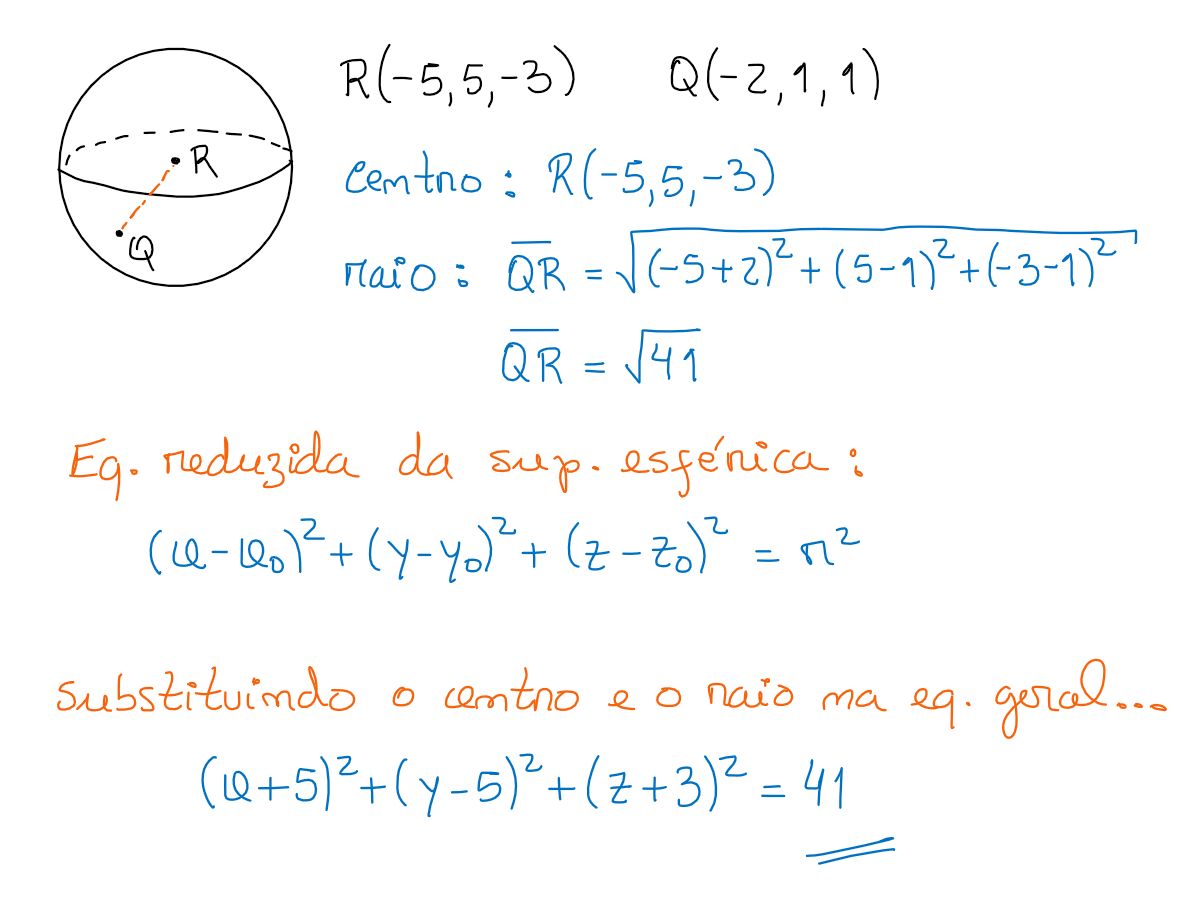 R(-5,5,-3) Q(-2,1,1)
R
Q
centro: R(-5,5,-3)
raio: Q̅R̅ = √((-5+2)²+(5-1)²+(-3-1)²)
Q̅R̅ = √41
Eq. reduzida da sup. esférica:
(x-x₀)²+(y-y₀)²+(z-z₀)² = r²
substituindo o centro e o raio na eq. geral...
(x+5)²+(y-5)²+(z+3)² = 41